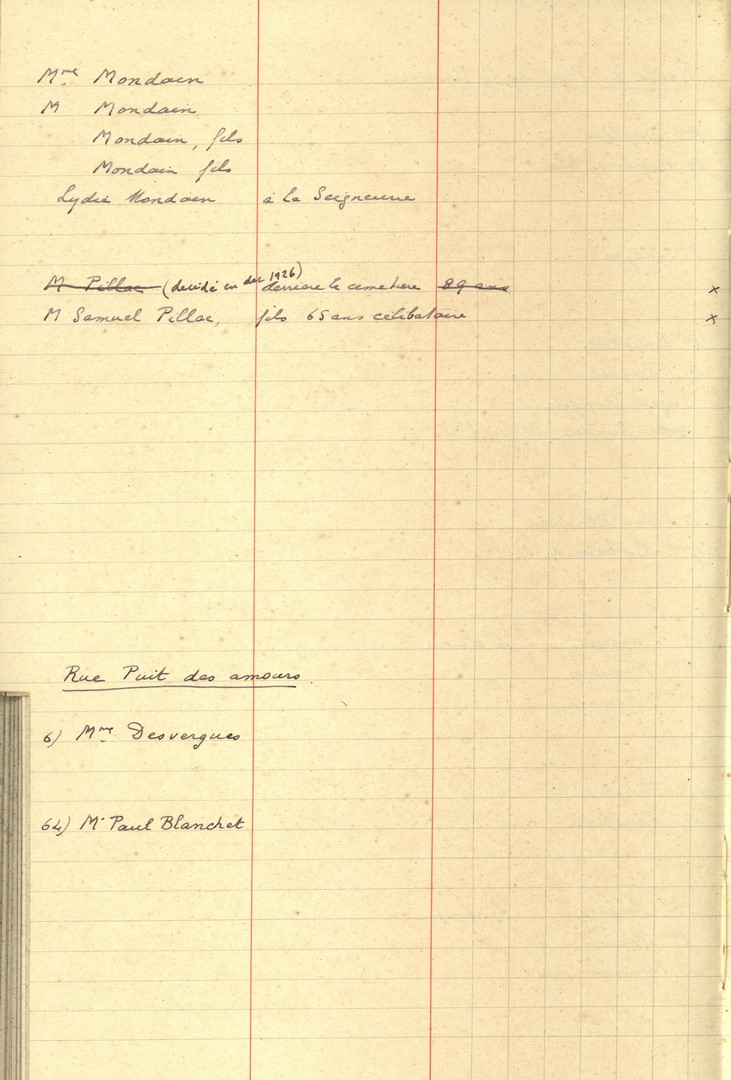 Mme Mondain
M Mondain
Mondain, fils
Mondain fils
Lydie Mondain à la Seigneurie
M Pillac (décédé en dec 1926) derriere le cemetiere 89 ans x
M Samuel Pillac, fils 65 ans célibataire x
Rue Puit des amours.
6) Mme Desvergnes
64) Mr Paul Blanchet